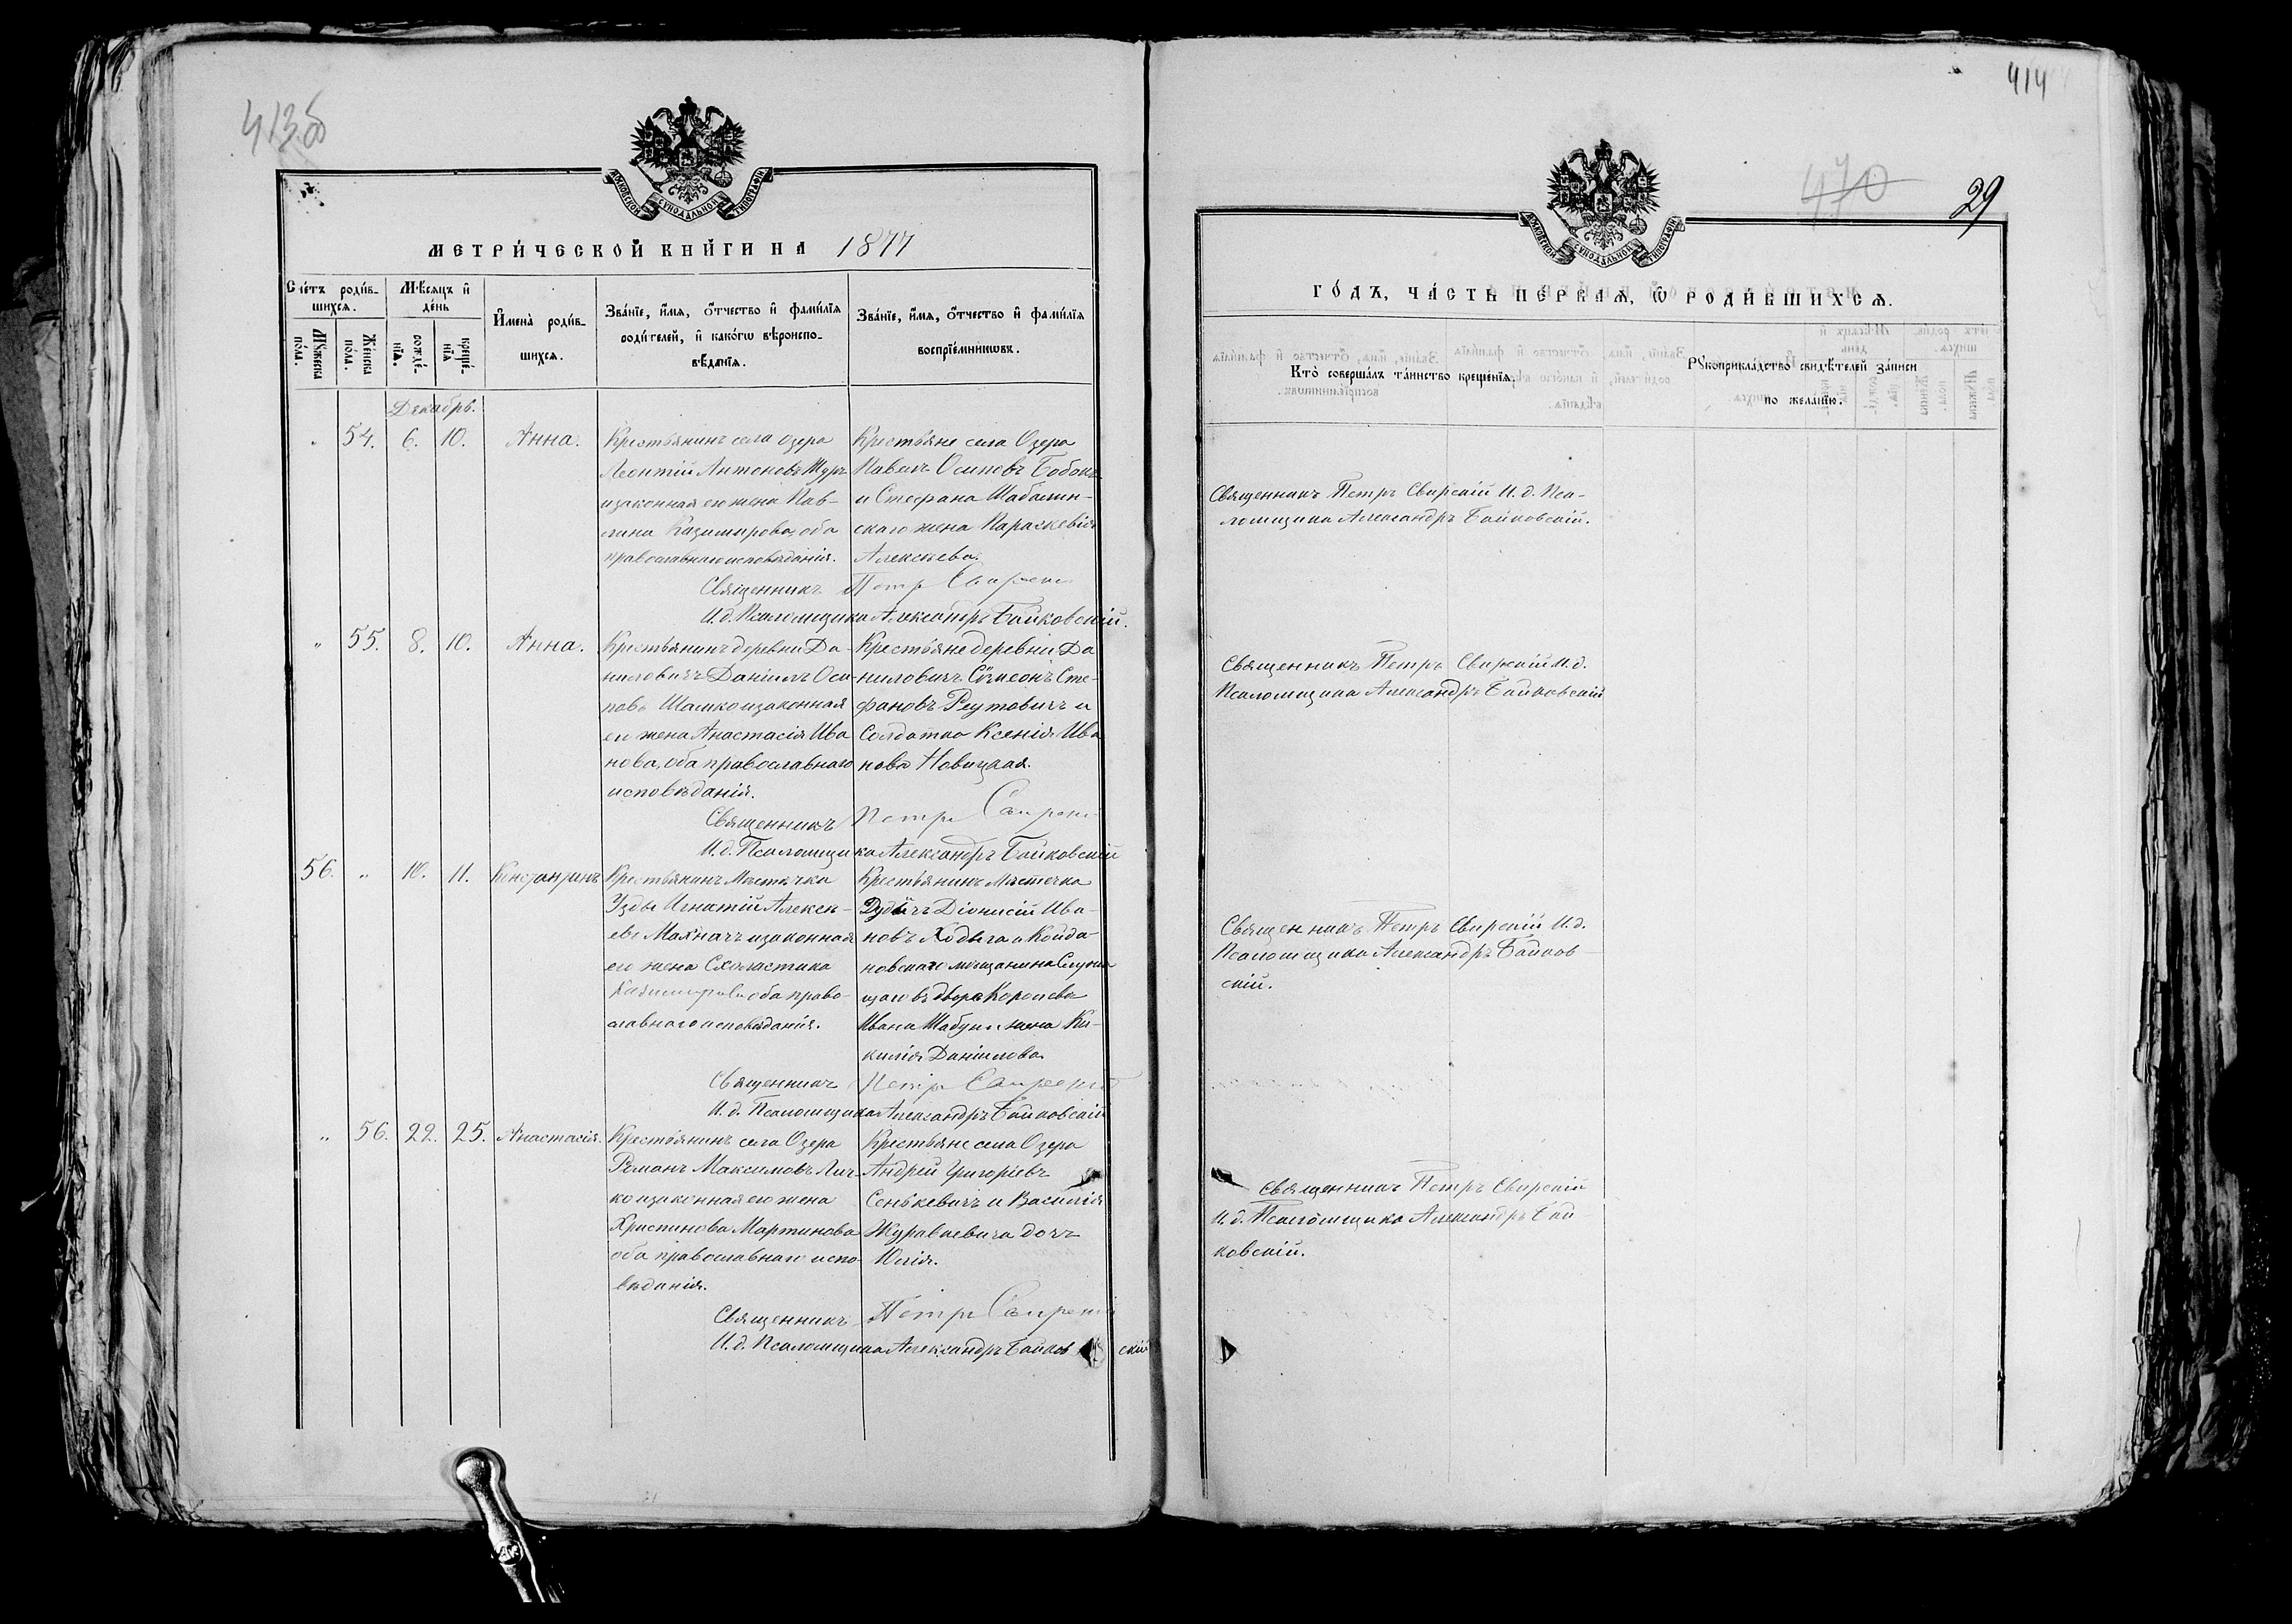 413б
МОСКОВСКОЙ СУНОДАЛЬНОЙ ТИПОГРАФІИ
МЕТРИ́ЧЕСКОЙ КНИ́ГИ НА 1877
Сче́тъ роди́вшихсѧ.
Мѣ́сяцъ и҆ де́нь
И҆мена̀ роди́вшихсѧ.
Зва́нїе, и҆́мѧ, ѻ҆́тчество и҆ фами́лїѧ роди́телей, и҆ како́гѡ вѣроисповѣ́данїѧ.
Зва́нїе, и҆́мѧ, ѻ҆́тчество и҆ фами́лїѧ воспрїе́мникѡвъ.
Мꙋ́жеска по́ла.
Же́нска по́ла.
рожде́нїѧ.
креще́нїѧ
Декабрь.
" 54. 6. 10. Анна.
Крестьянинъ села Озера
Леонтій Антоновъ
и законная его жена Пав-
лина Казимирова, оба
православнаго исповѣданія.
Крестьяне села Озера
Павелъ Осиповъ
и Стефана
скаго жена Параскевія
Алексѣева.
Священникъ Петръ Свирскі
И. д. Псаломщика Александръ Байковскій.
" 55. 8. 10. Анна.
Крестьянинъ деревни Да-
ниловичъ Даніилъ Оси-
повъ Шашко и законная
его жена Анастасія Ива
нова, оба православнаго
исповѣданія.
Крестьяне деревни Да
ниловичъ Сѵмеонъ Сте-
фановъ Реутовичъ и
Солдатка Ксенія Ива
нова Новицкая.
Священникъ Петръ Свирскі
И. д. Псаломщика Александръ Байковскій
56. " 10. 11. Константинъ
Крестьянинъ Мѣстечка
Узды Игнатій Алексѣ-
евъ Махначъ и законная
его жена Схоластика
Казимирова оба право-
славнаго исповѣданія.
Крестьянинъ Мѣстечка
Діонисій Ива-
новъ Ходыга и Койда-
новскаго мѣщанина Служа
щаго въ дворѣ
Ивана жена Ки-
килія Даніилова.
Священникъ Петръ Свирскій
И. д. Псаломщика Александръ Байковскій
" 56. 22. 25. Анастасія.
Крестьянинъ села Озера
Романъ Максимовъ Лич-
ко и законная его жена
Христинова Мартинова
оба православнаго испо-
вѣданія.
Крестьяне села Озера
Андрей Григоріевъ
Сенькевичъ и Василія
Журавлевича дочь
Юлія.
Священникъ Петръ Свирскій
И. д. Псаломщика Александръ Байковскій
414
470
29
МОСКОВСКОЙ СУНОДАЛЬНОЙ ТИПОГРАФІИ
ГО́ДЪ, ЧА́СТЬ ПЕ́РВАѦ, Ѽ РОДИ́ВШИХСѦ.
Кто̀ соверша́лъ та́инство креще́нїѧ.
Рꙋкоприкла́дство свидѣ́телей за́писи
по жела́нїю.
Священникъ Петръ Свирскій И. д. Пса-
ломщика Александръ Байковскій.
Священникъ Петръ Свирскій И. д.
Псаломщика Александръ Байковскій
Священникъ Петръ Свирскій И. д.
Псаломщика Александръ Байков-
скій.
Священникъ Петръ Свирскій
И. д. Псаломщика Александръ Бай
ковскій.